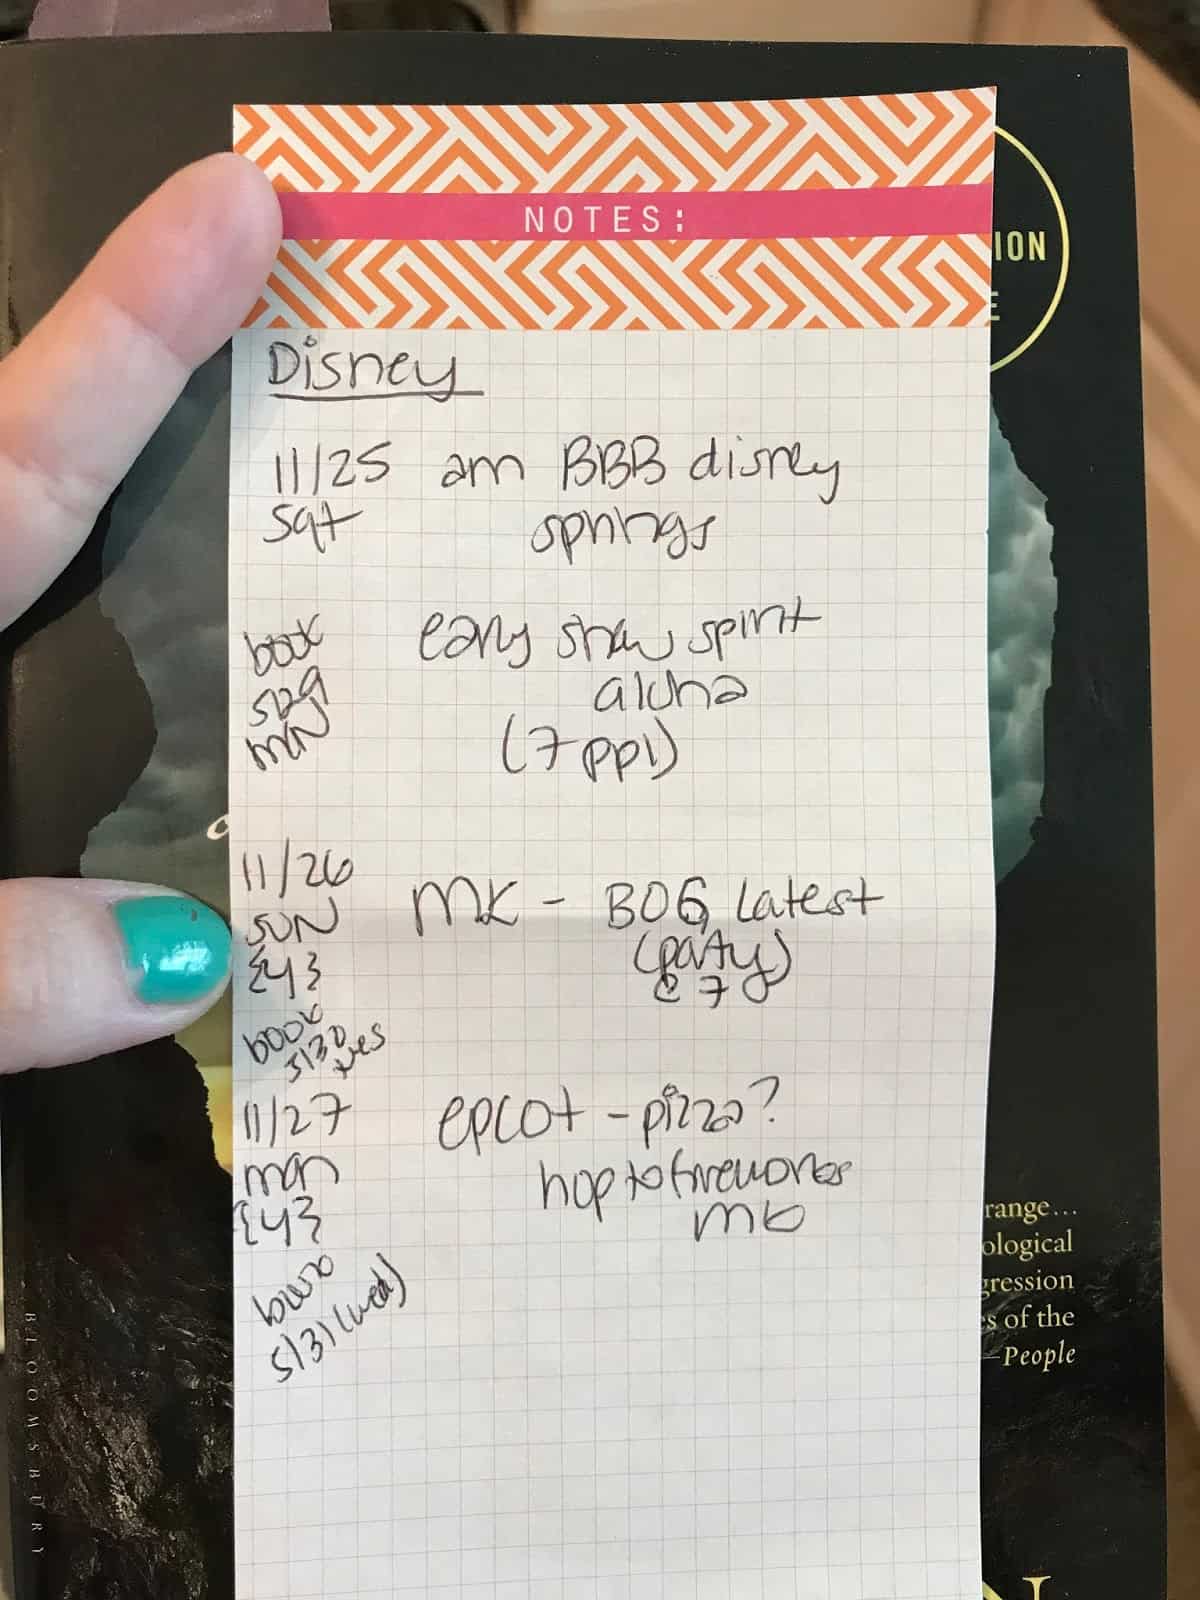 NOTES:
Disney
11/25 am BBB disney
Sat springs
book early show spirit
5/29 aloha
mon (7 ppl)
11/26
SUN MK - BOG Latest
{43 (party)
@ 7
book
5/30
tues
11/27 epcot - pizza?
mon hop to fireworks
{43 mk
book
5/31 (wed)
ION
E
range...
ological
gression
s of the
—People
BLOOMSBURY
N